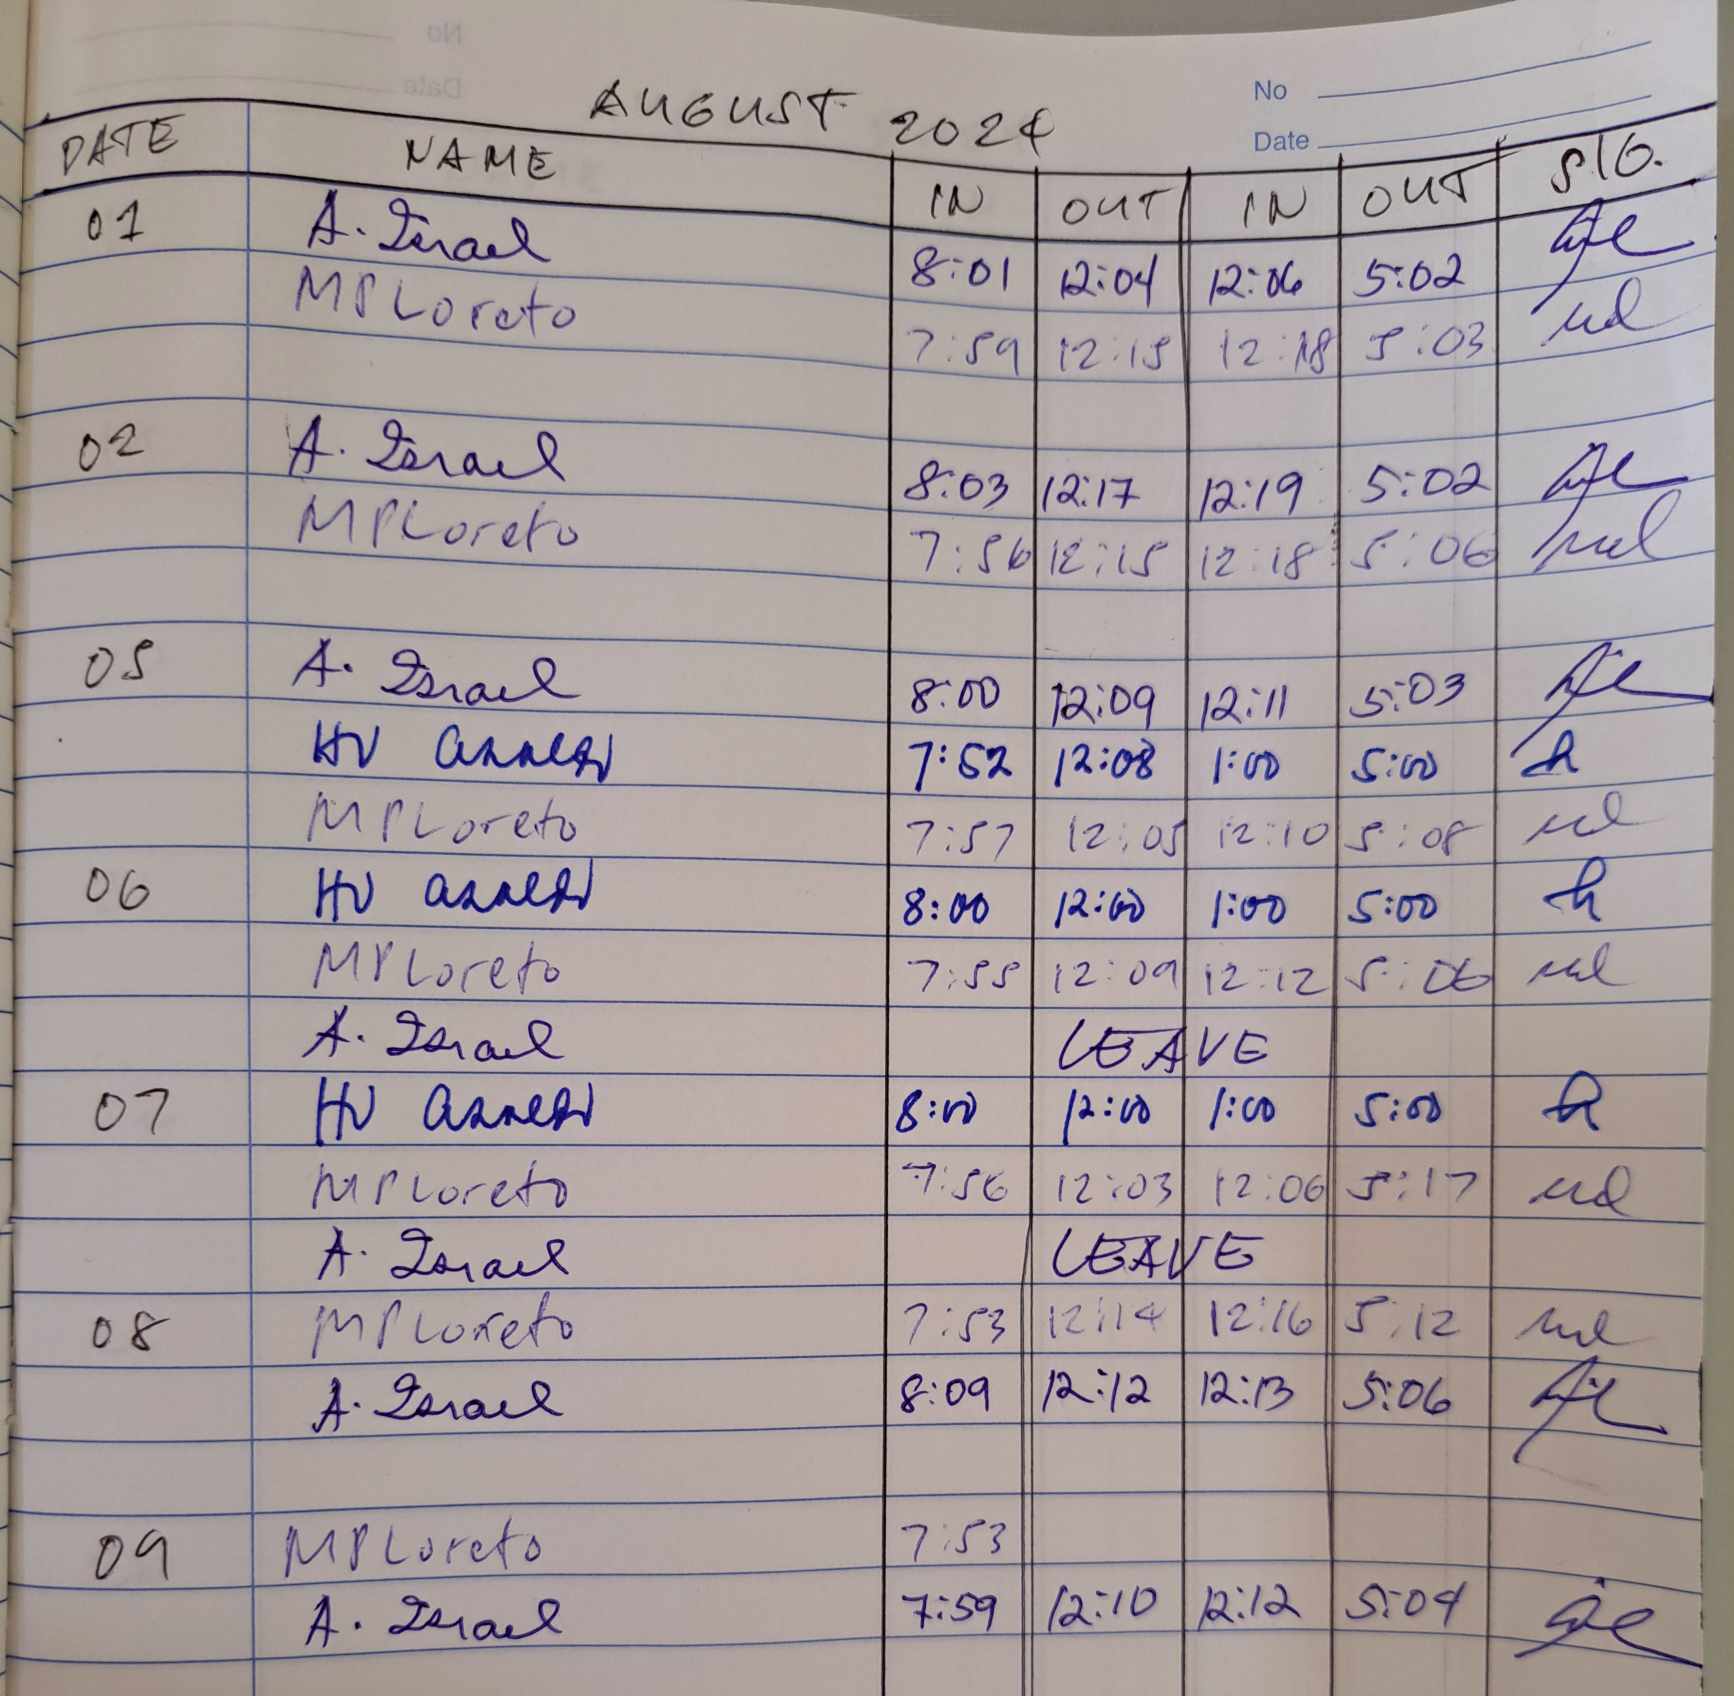 No
Date
AUGUST 2024
DATE NAME IN OUT IN OUT SIG.
01 A. Israel 8:01 12:04 12:06 5:02
MPLoreto 7:59 12:15 12:18 5:03
02 A. Israel 8:03 12:17 12:19 5:02
MPLoreto 7:56 12:15 12:18 5:06
05 A. Israel 8:00 12:09 12:11 5:03
HV 7:52 12:08 1:00 5:00
MPLoreto 7:57 12:05 12:10 5:08
06 HV 8:00 12:00 1:00 5:00
MPLoreto 7:55 12:09 12:12 5:06
A. Israel LEAVE
07 HV 8:00 12:00 1:00 5:00
MPLoreto 7:56 12:03 12:06 5:17
A. Israel LEAVE
08 MPLoreto 7:53 12:14 12:16 5:12
A. Israel 8:09 12:12 12:13 5:06
09 MPLoreto 7:53
A. Israel 7:59 12:10 12:12 5:04